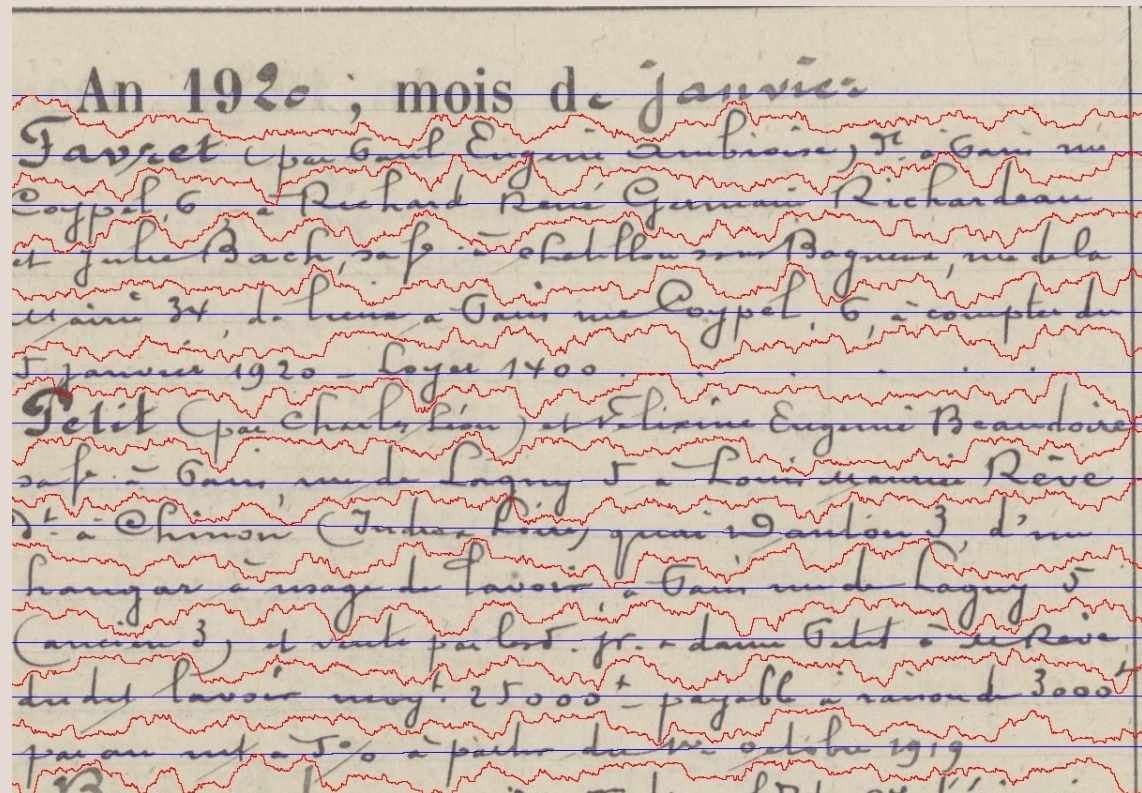 An 1920 ; mois de janvier
Favret (par Paul Eugène Ambroise) Dt. à Paris rue
Coypel, 6 à Richard René Germain Richardeau
et Julie Bach, sa fe à Chatillon sous Bagneux, rue de la
Mairie 34, de lieux à Paris rue Coypel, 6, à compter du
5 janvier 1920 – Loyer 1400.
Petit (par Charles Léon) et Félixine Eugénie Beaudoire
sa fe à Paris, rue de Lagny 5 à Louis Maurice Rêve
Dt. à Chinon (Indre & Loire) quai Danton 3, d'un
hangar à usage de lavoir, à Paris rue de Lagny 5
(ancien 3) et vente par lesd. Sr. & dame Petit à M Rêve
dudit lavoir moyt. 25000f – payable à raison de 3000f
par an int à 5% à partir du 1er octobre 1919